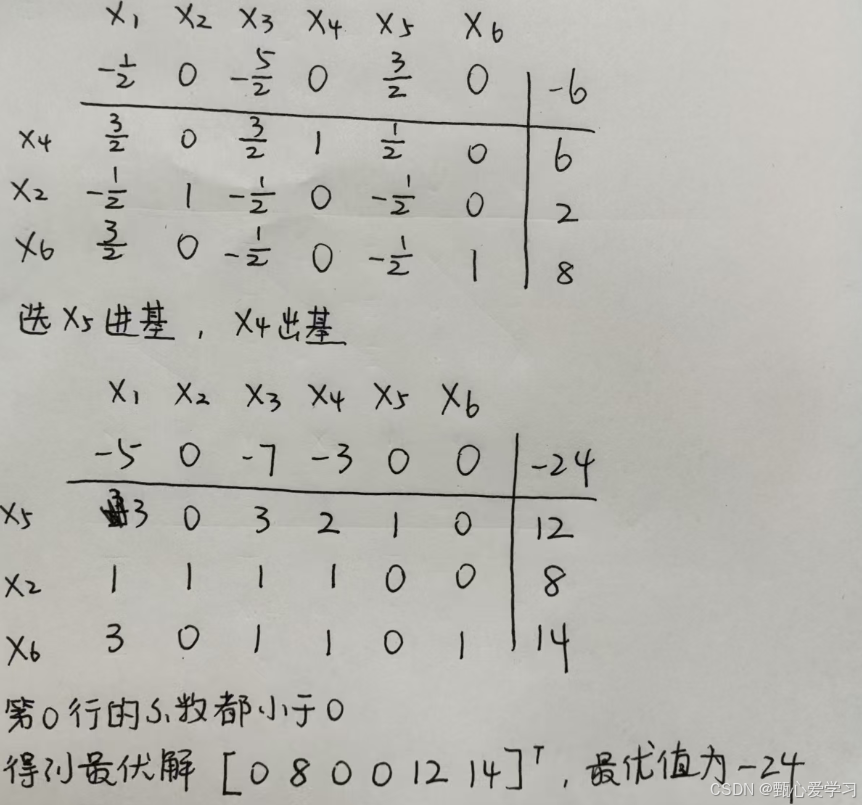 x₁ x₂ x₃ x₄ x₅ x₆
-1/2 0 -5/2 0 3/2 0 | -6
x₄ 3/2 0 3/2 1 1/2 0 | 6
x₂ -1/2 1 -1/2 0 -1/2 0 | 2
x₆ 3/2 0 -1/2 0 -1/2 1 | 8
选 x₅ 进基, x₄ 出基
x₁ x₂ x₃ x₄ x₅ x₆
-5 0 -7 -3 0 0 | -24
x₅ 3 0 3 2 1 0 | 12
x₂ 1 1 1 1 0 0 | 8
x₆ 3 0 1 1 0 1 | 14
第0行的系数都小于0
得到最优解 [0 8 0 0 12 14]ᵀ, 最优值为-24
CSDN @甄心爱学习